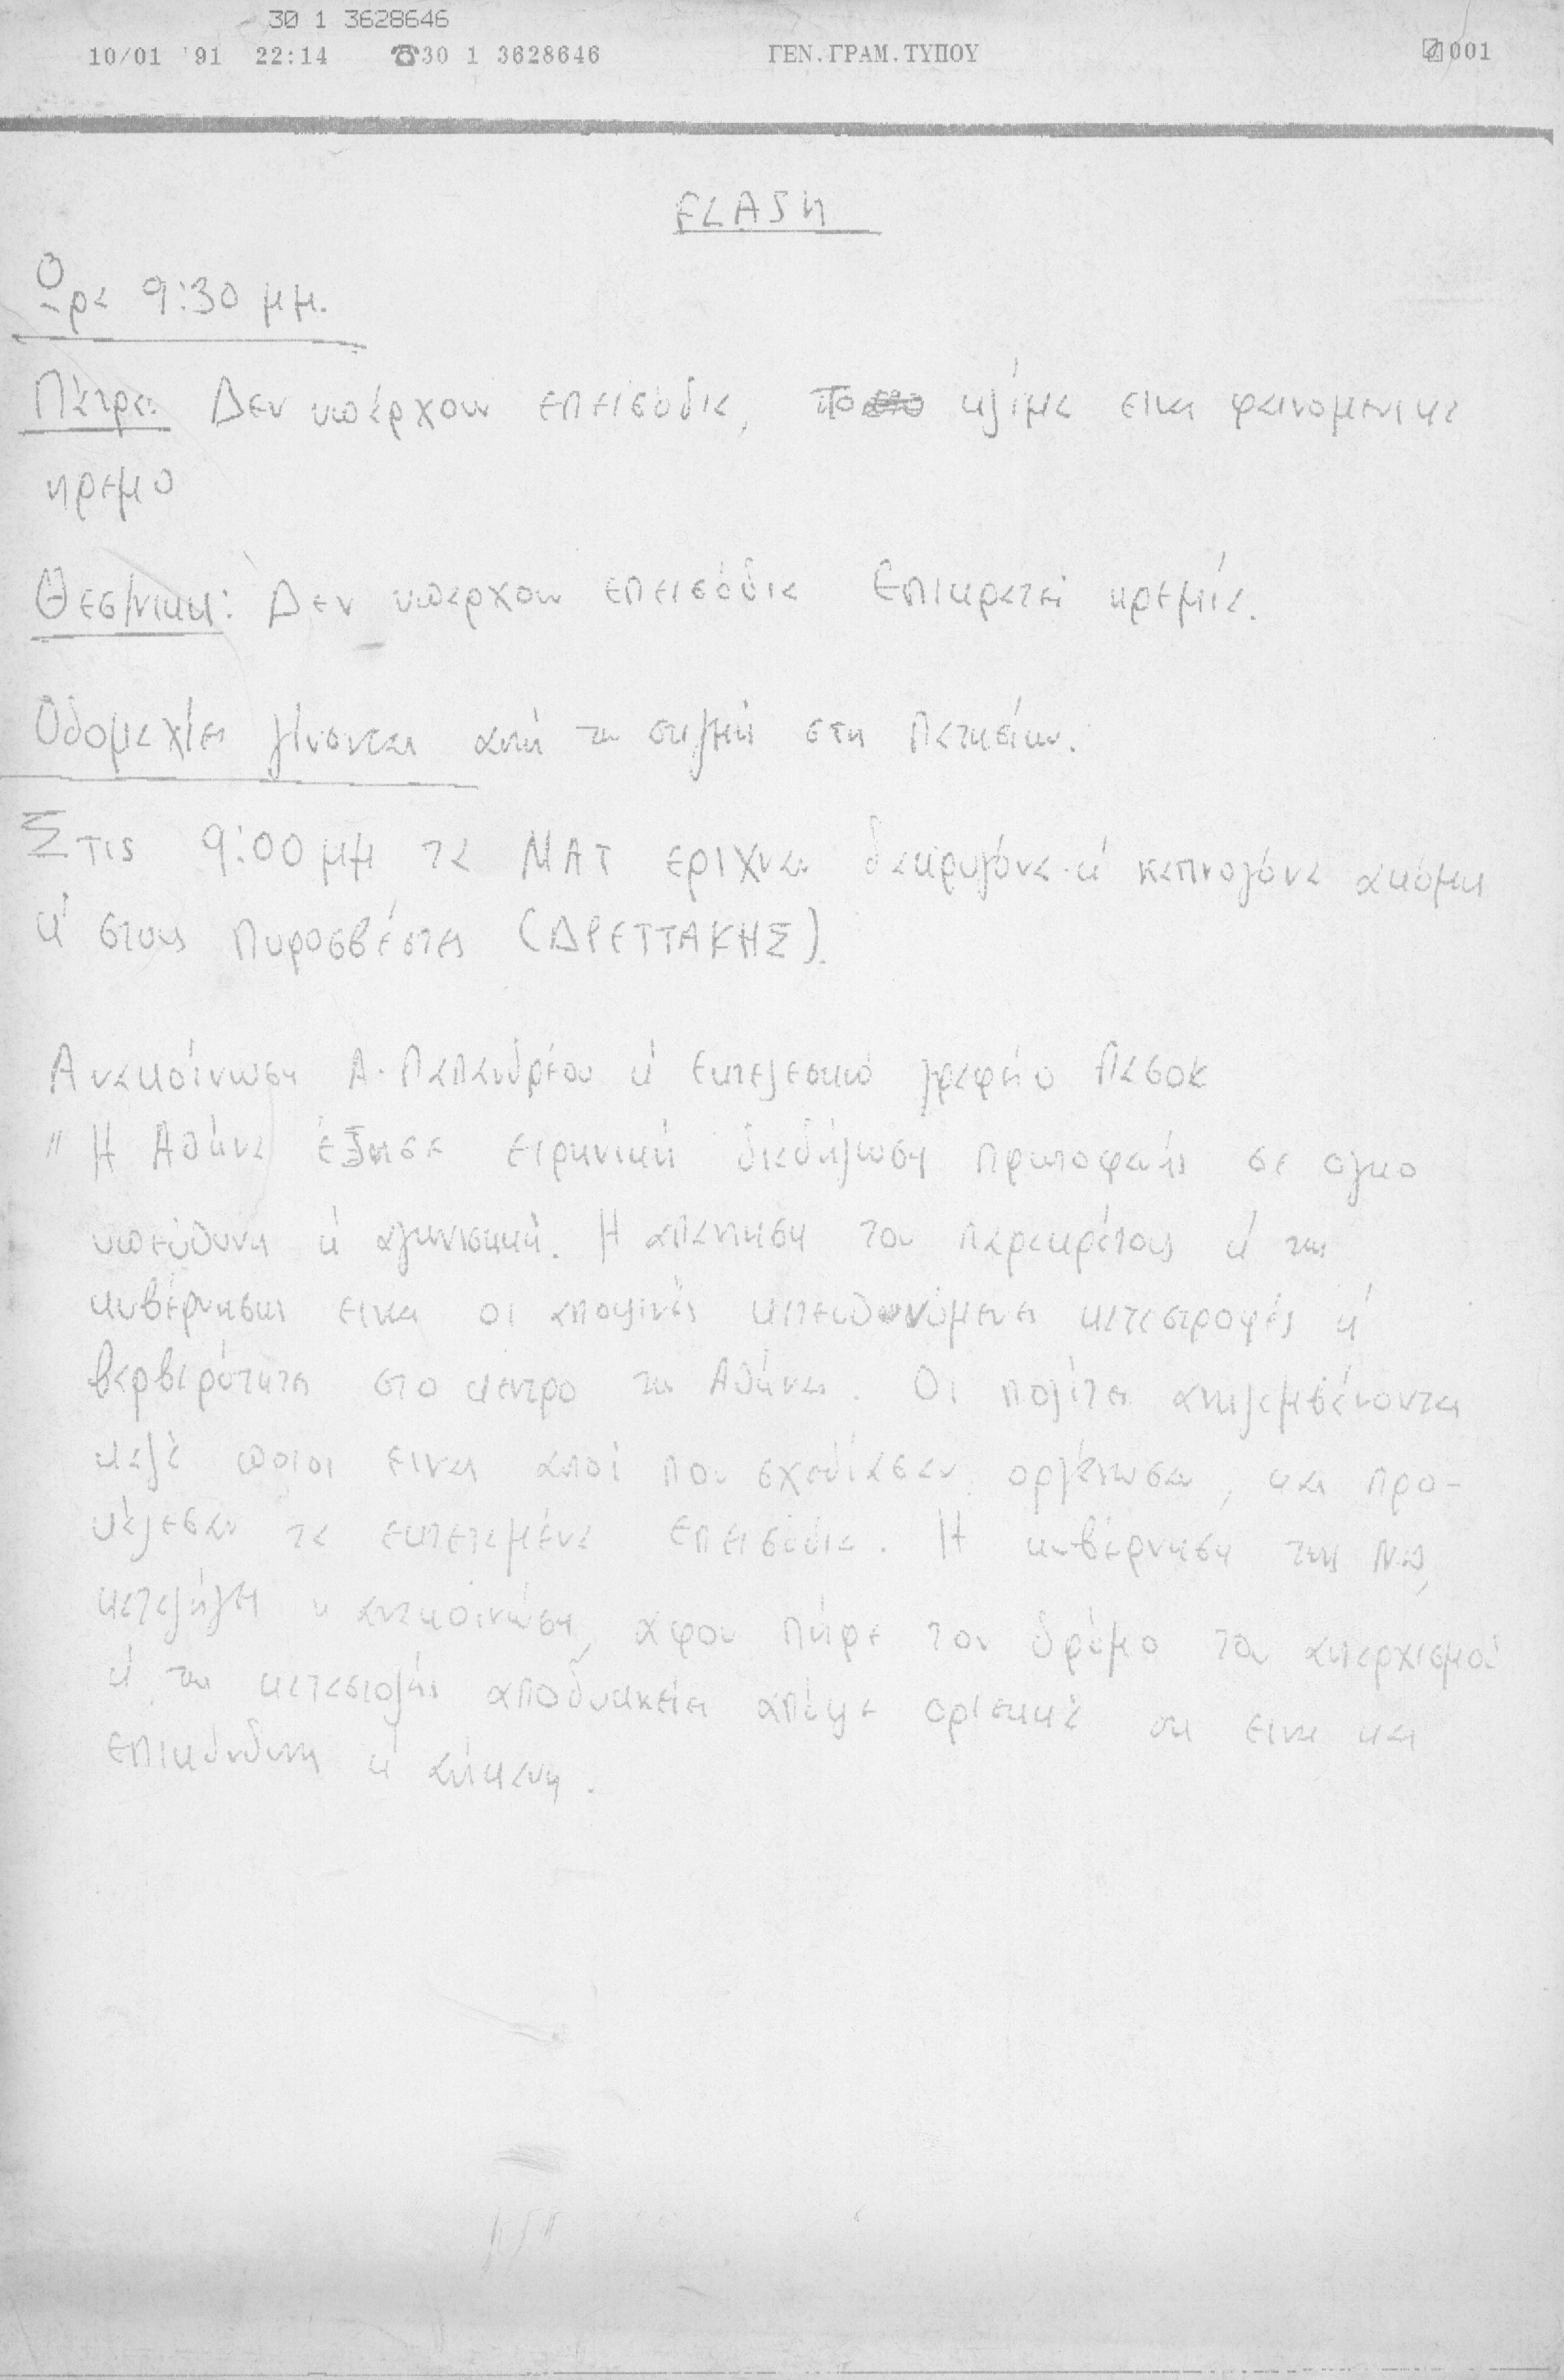 30 1 3628646
10/01 '91 22:14 ☎30 1 3628646 ΓΕΝ.ΓΡΑΜ.ΤΥΠΟΥ 001
FLASH
Ώρα 9:30 μμ.
Πάτρα: Δεν υπάρχουν επεισόδια, το κλίμα είναι φαινομενικά
ηρεμο
Θεσ/νικη: Δεν υπαρχουν επεισόδια Επικρατεί ηρεμία.
Οδομαχίες γίνονται αυτή τη στιγμή στη Πατησίων.
Στις 9:00 μμ τα ΜΑΤ εριχναν δακρυγόνα κ' καπνογόνα ακόμη
κ' στους Πυροσβέστες (ΔΡΕΤΤΑΚΗΣ).
Ανακοίνωση Α. Παπανδρέου κ' Εκτελεστικό γραφείο Πασοκ
" Η Αθήνα έζησε ειρηνική διαδήλωση πρωτοφανής σε ογκο
υπεύθυνη κ' αγωνιστική. Η απάντηση του παρακράτους κ' της
κυβέρνησης ειναι οι αποψινές κατευθυνόμενες καταστροφές κ'
βαρβαρότητα στο κεντρο της Αθήνας. Οι πολίτες αντιλαμβάνονται
καλά ποιοι ειναι αυτοί που σχεδίασαν, οργάνωσαν, και προ-
κάλεσαν τα εκτεταμένα επεισόδια. Η κυβέρνηση της ΝΔ,
καταλήγει η ανακοινώση, αφου πήρε τον δρόμο του αυταρχισμού
κ' της καταστολής αποδυκνείει απόψε οριστικά οτι ειναι και
επικίνδυνη κ' ανίκανη.